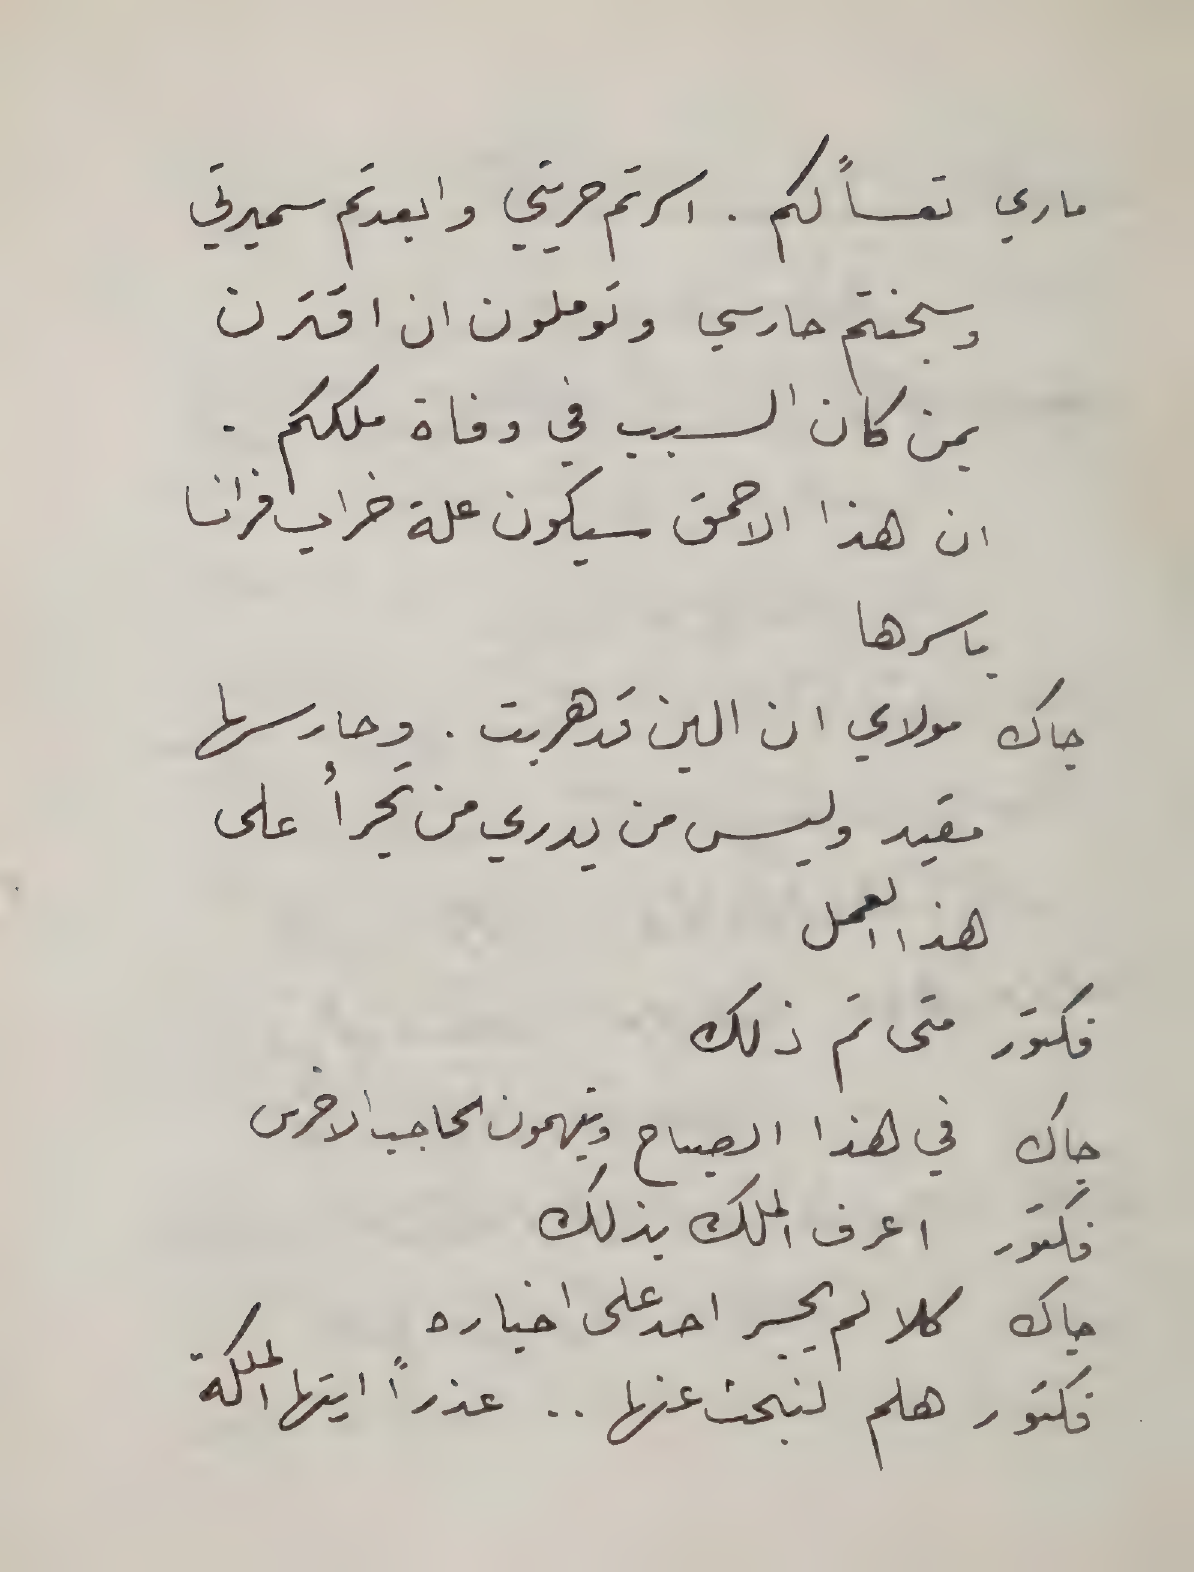 ماري تعساً لكم . اسرتم حريتي وابعدتم سميرتي
وسجنتم حارسي وتوملون ان اقترن
بمن كان السبب في وفاة ملككم .
ان هذا الاحمق سيكون علة خراب فرانسا
باسرها
جاك مولاي ان الين قد هربت . وحارسها
مقيد وليس من يدري من تجرأ على
هذا العمل
فكتور متى تم ذلك
جاك في هذا الصباح ويتهمون الحاجب الاخرس
فكتور اعرف الملك بذلك
جاك كلا لم يجسر احد على اخباره
فكتور هلم لنبحث عنها .. عذراً ايتها الملكة